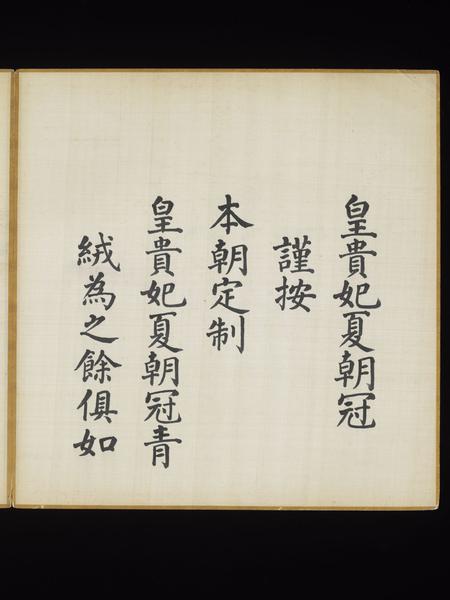 皇貴妃夏朝冠
謹按
本朝定制
皇貴妃夏朝冠青
絨為之餘俱如